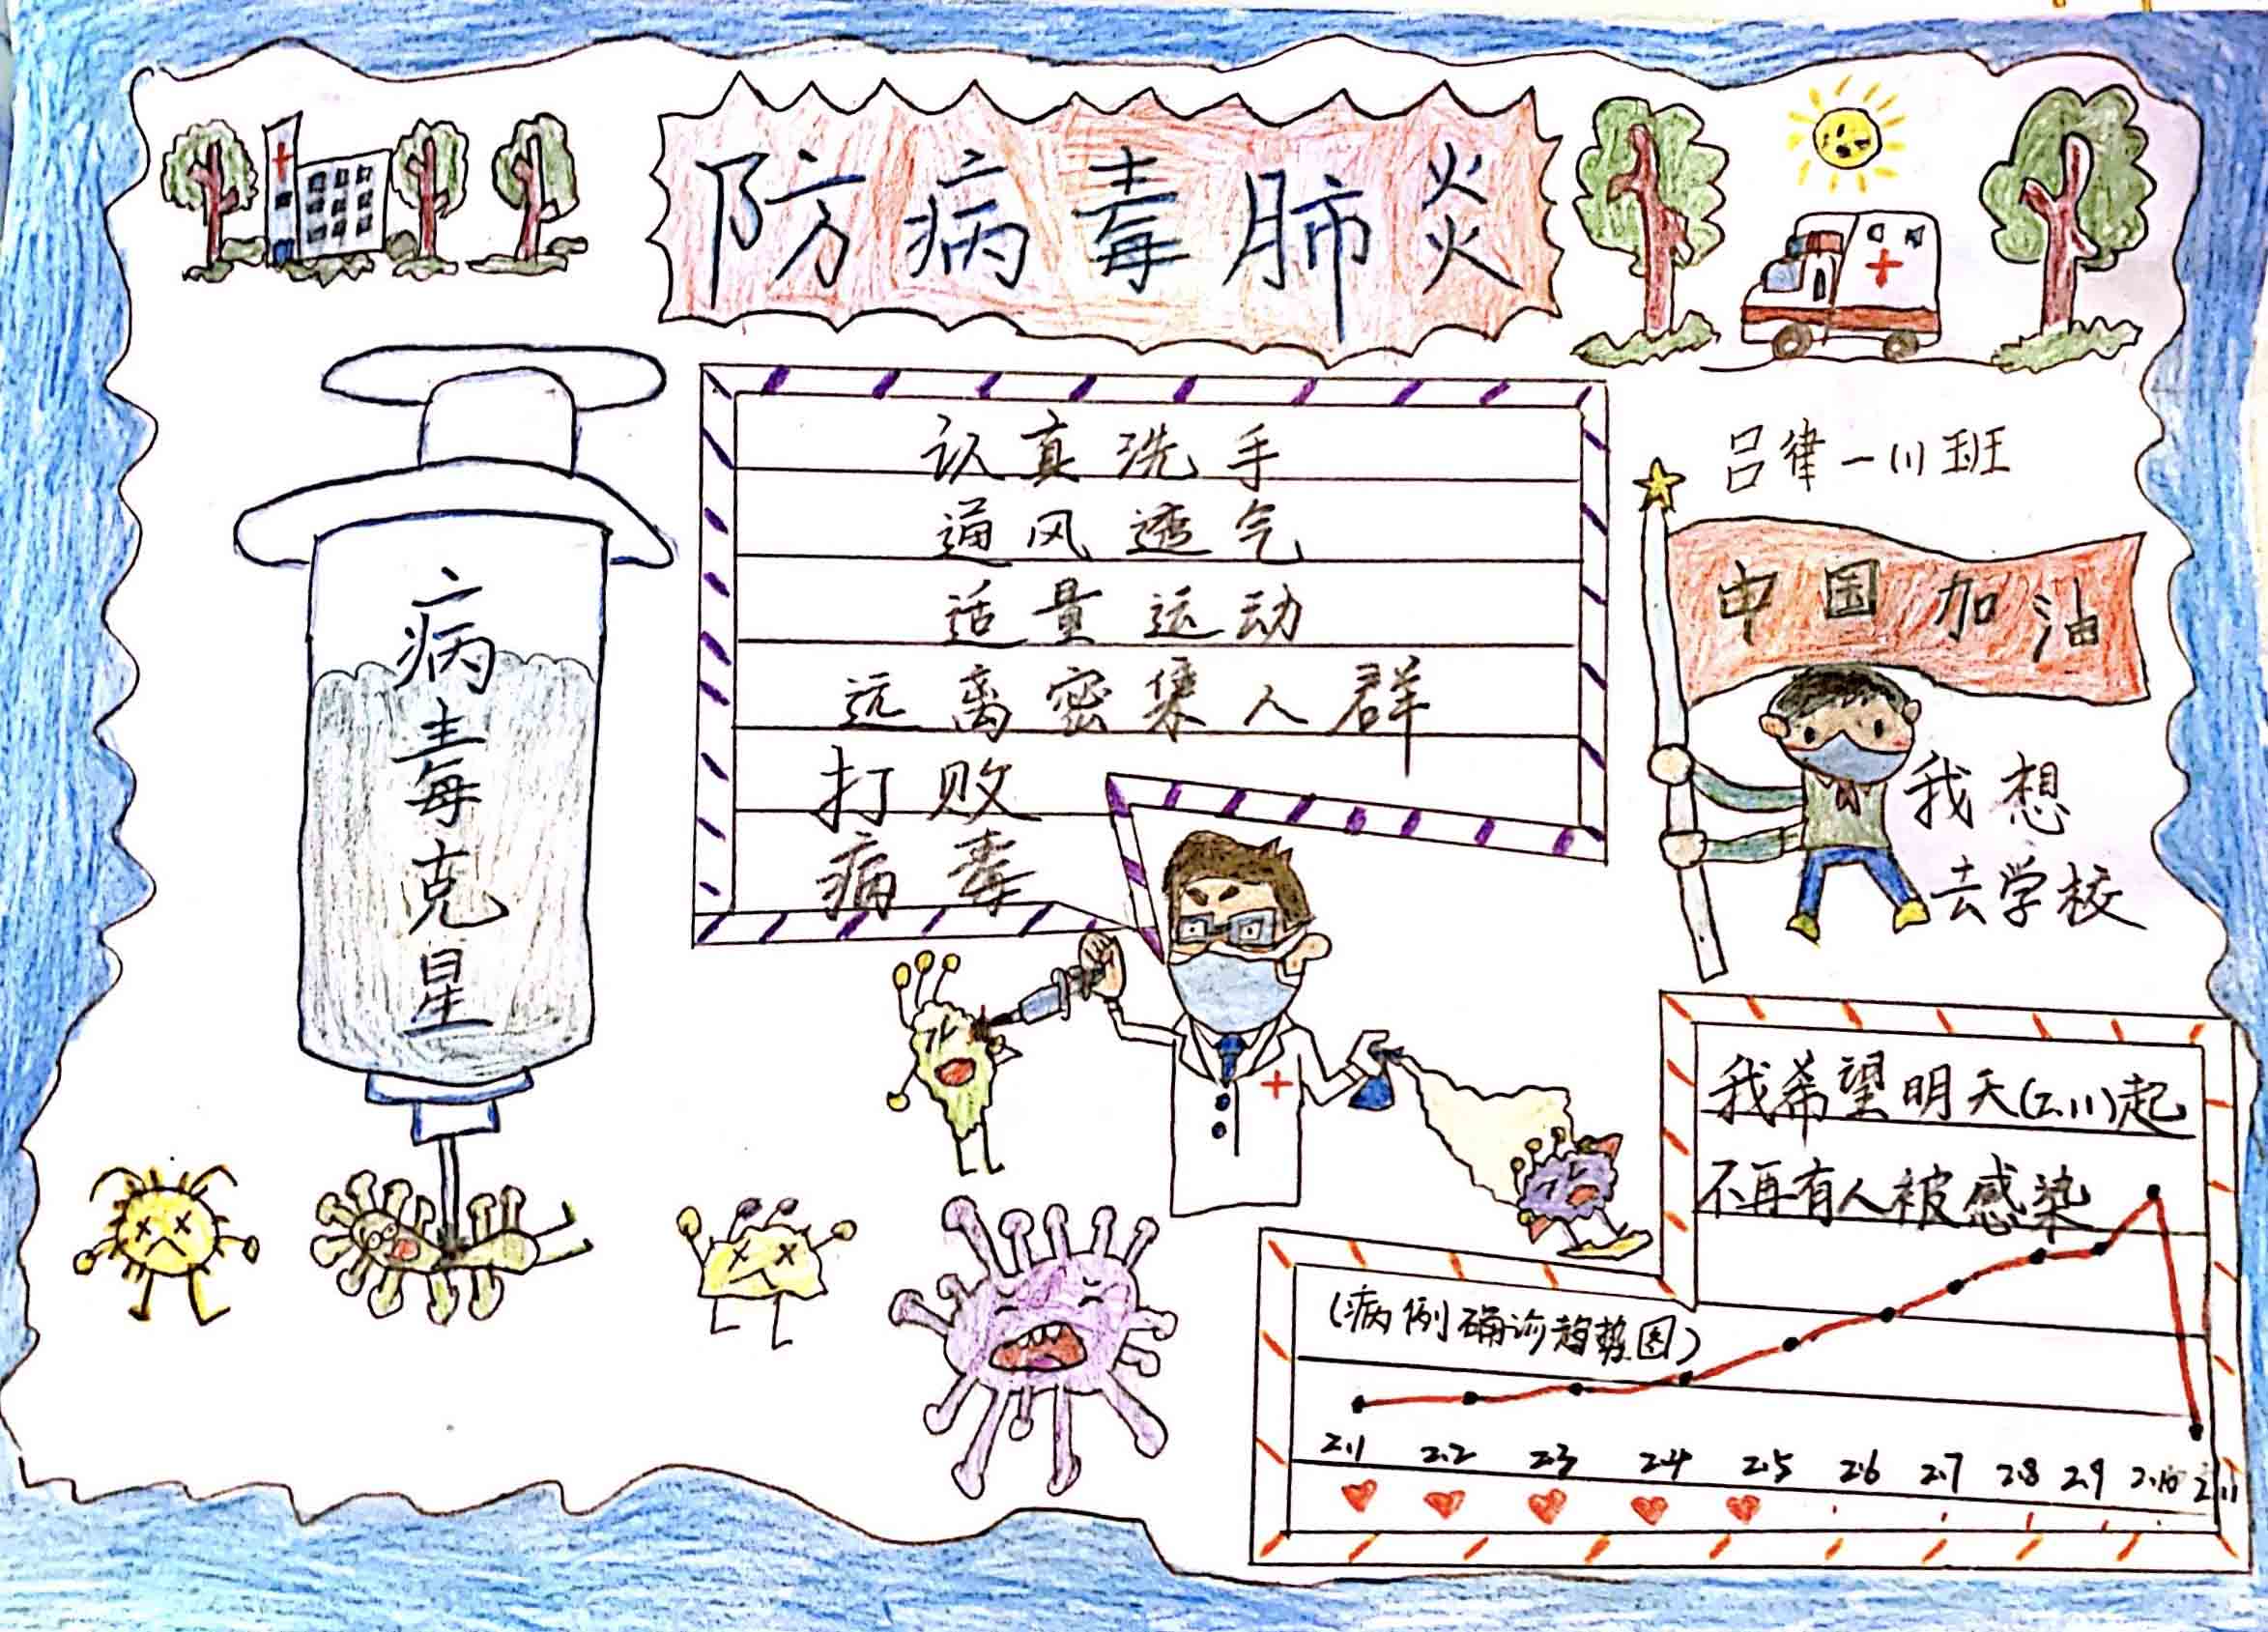 防病毒肺炎
吕律一(1)班
认真洗手
通风透气
适量运动
远离密集人群
打败
病毒
病毒克星
中国加油
我想
去学校
我希望明天(2.11)起
不再有人被感染
(病例确诊趋势图)
2.1 2.2 2.3 2.4 2.5 2.6 2.7 2.8 2.9 2.10 2.11